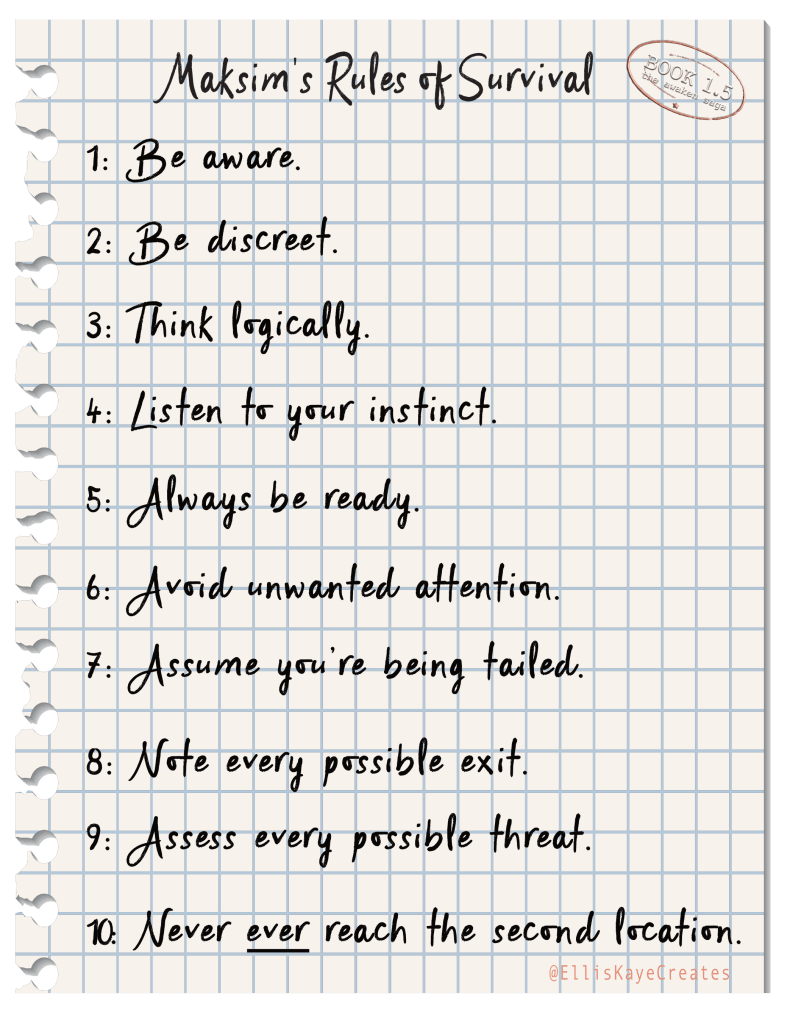 Maksim's Rules of Survival
BOOK 1.5
the awaken saga
1: Be aware.
2: Be discreet.
3: Think logically.
4: Listen to your instinct.
5: Always be ready.
6: Avoid unwanted attention.
7: Assume you're being tailed.
8: Note every possible exit.
9: Assess every possible threat.
10: Never ever reach the second location.
@EllisKayeCreates